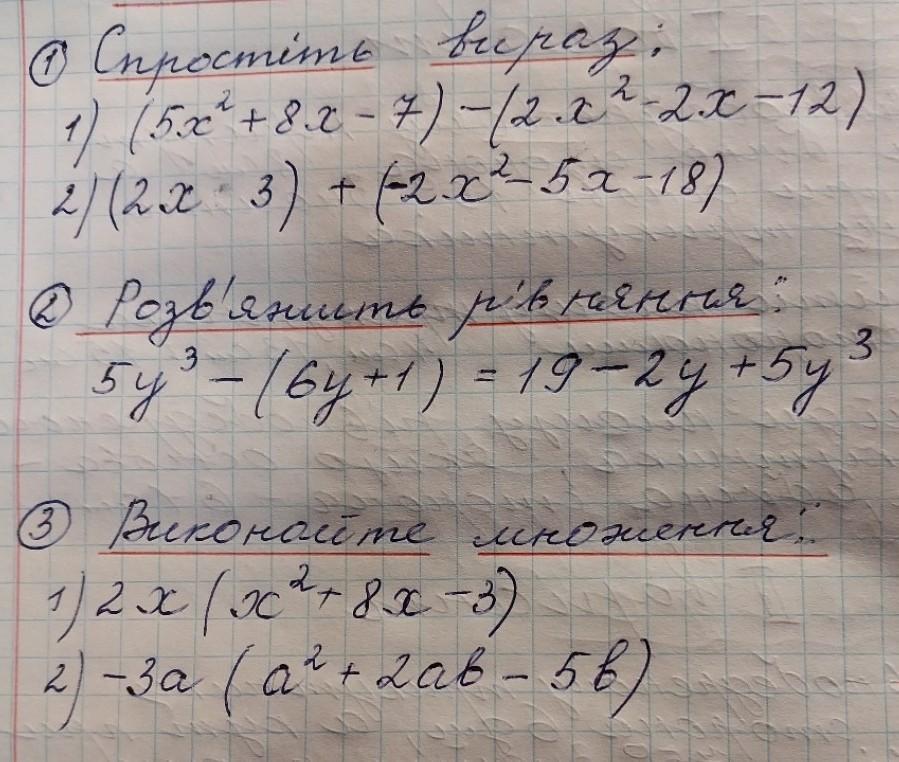 ① Спростіть вираз:
1) (5x² + 8x - 7) - (2x² - 2x - 12)
2) (2x 3) + (-2x² - 5x - 18)
② Розв'яжить рівняння:
5y³ - (6y + 1) = 19 - 2y + 5y³
③ Виконайте множення:
1) 2x (x² + 8x - 3)
2) -3a (a² + 2ab - 5b)